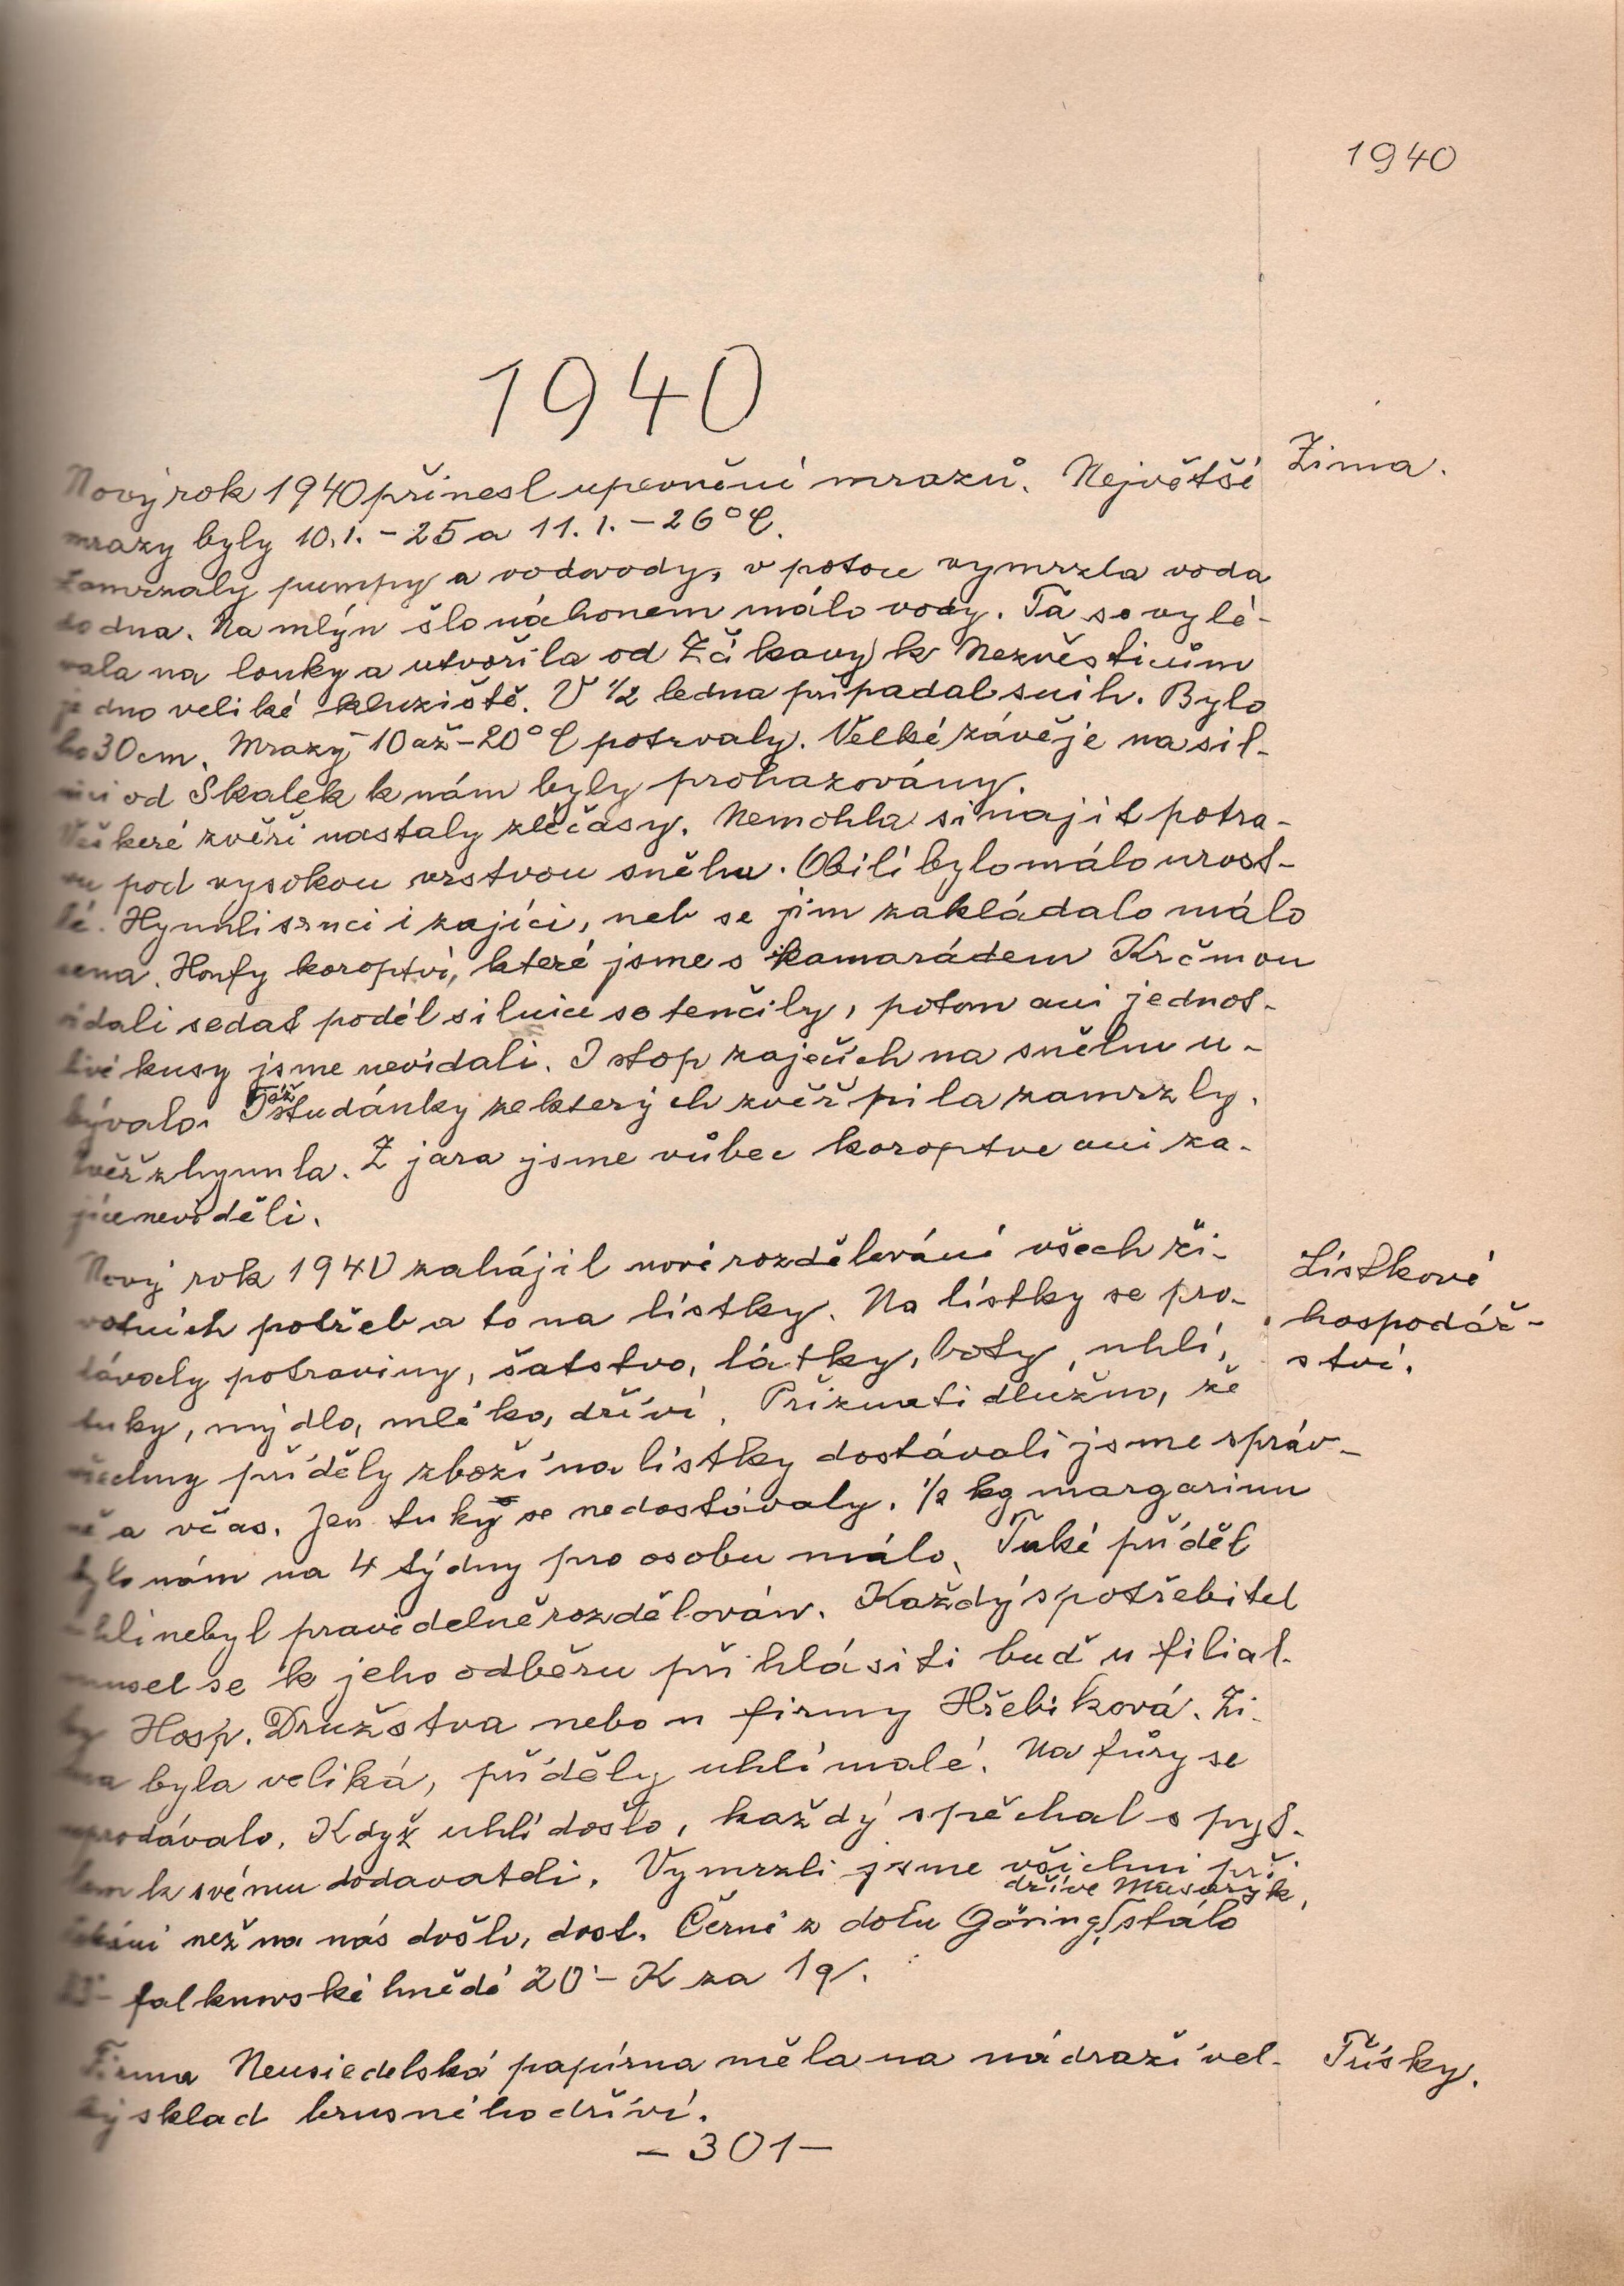 1940
1940
Nový rok 1940 přinesl upevnění mrazů. Největší
Zima.
mrazy byly 10.1. -25 a 11.1. -26°C.
Zamrzaly pumpy a vodovody, v potoce vymrzla voda
do dna. Na mlýn šlo náhonem málo vody. Ta se vylé-
vala na louky a utvořila od Žákavy k Nezvěsticům
jedno veliké kluziště. V ½ ledna připadal snih. Bylo
ho 30cm. Mrazy -10 až -20°C potrvaly. Velké závěje na sil-
nici od Skalek k nám byly prohazovány.
Veškeré zvěři nastaly zlé časy. Nemohla si najít potra-
vu pod vysokou vrstvou sněhu. Obilí bylo málo urost-
lé. Hynuli srnci i zajíci, neb se jim zakládalo málo
sena. Houfy koroptví, které jsme s kamarádem Krčmou
vídali sedat podél silnice se tenčily, potom ani jednot-
livé kusy jsme nevídali. I stop zaječích na sněhu u-
bývalo. Též studánky ze kterých zvěř pila zamrzly.
Zvěř zhynula. Z jara jsme vůbec koroptve ani za-
jíce neviděli.
Nový rok 1940 zahájil nové rozdělování všech ži-
Lístkové
votních potřeb a to na lístky. Na lístky se pro-
hospodář-
dávaly potraviny, šatstvo, látky, boty, uhlí,
ství.
tuky, mýdlo, mléko, dříví. Přiznati dlužno, že
všechny příděly zboží na lístky dostávali jsme správ-
ně a včas. Jen tuky se nedostávaly. ½ kg margarinu
bylo nám na 4 týdny pro osobu málo. Také příděl
uhlí nebyl pravidelně rozdělován. Každý spotřebitel
musel se k jeho odběru přihlásiti buď u filial-
ky Hosp. Družstva nebo u firmy Hřebíková. Zi-
ma byla veliká, příděly uhlí malé. Na fůry se
neprodávalo. Když uhlí došlo, každý spěchal s pyt-
lem k svému dodavateli. Vymrzli jsme všichni při
dříve Masaryk,
čekání než na nás došlo, dost. Černé z dolu Göring, stálo
falknovské hnědé 20·- K za 1q.
Firma Neusiedelská papírna měla na nádraží vel-
Třísky.
ký sklad brusného dříví.
- 301 -